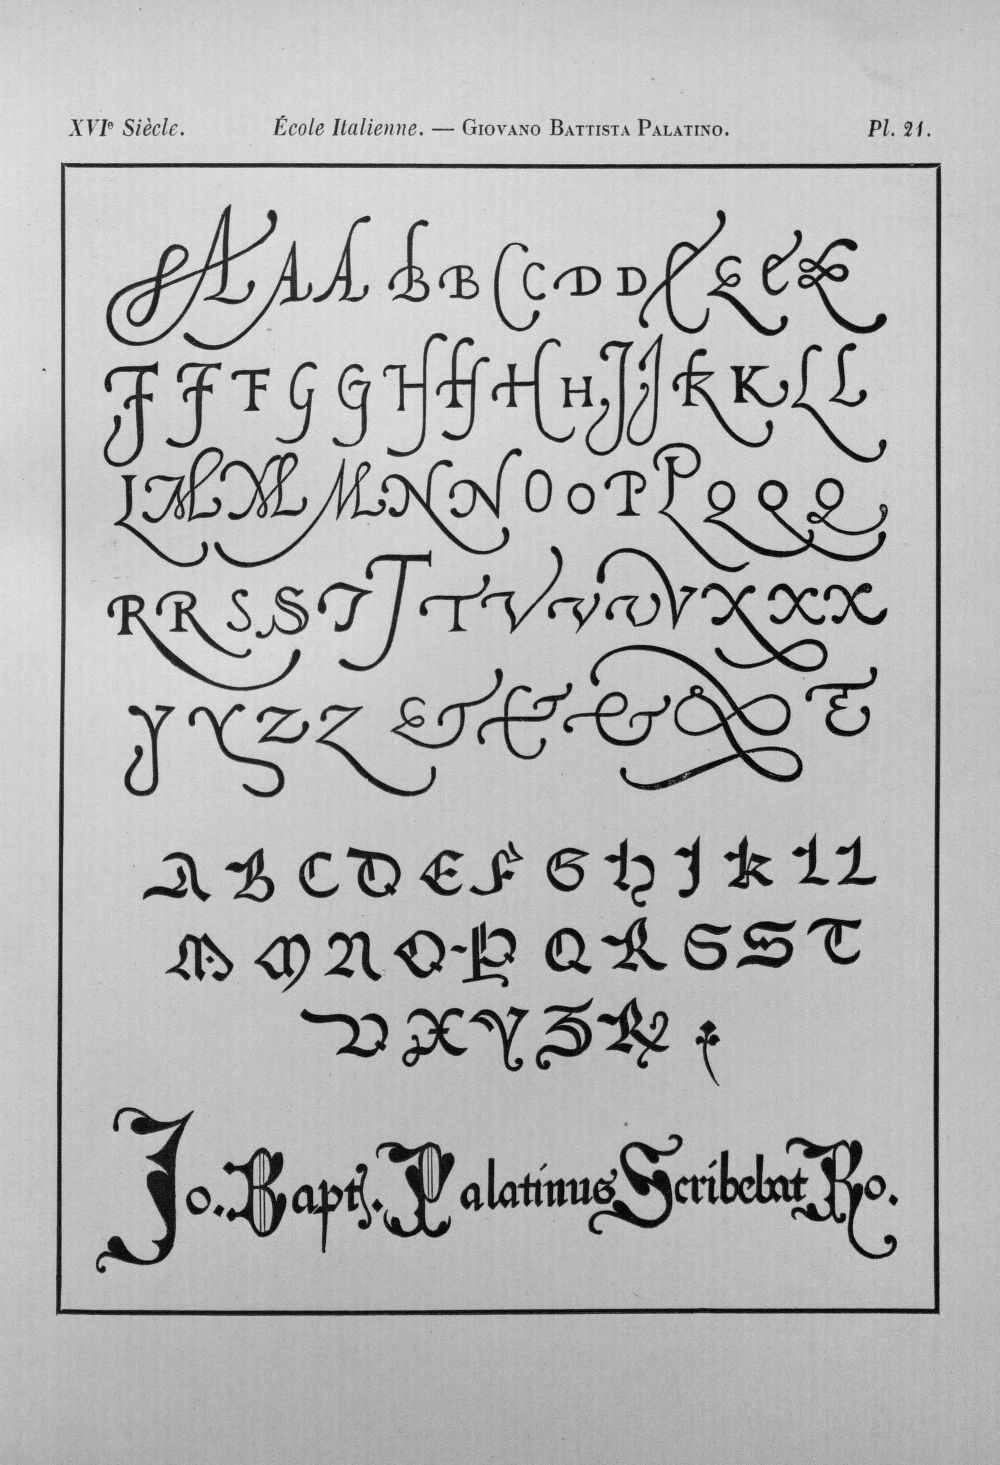 XVIe Siècle. École Italienne. — Giovano Battista Palatino. Pl. 21.
A A A B B C C D D E E E E
F F F G G H H H H J J K K L L
L M M M N N O O P P Q Q Q
R R S S T T T V V V X X X
Y Y Z Z & & & & &
A B C D E F G H J K L L
M M N O P Q R S S T
V X Y Z R
Jo. Bapt. Palatinus Scribebat Ro.